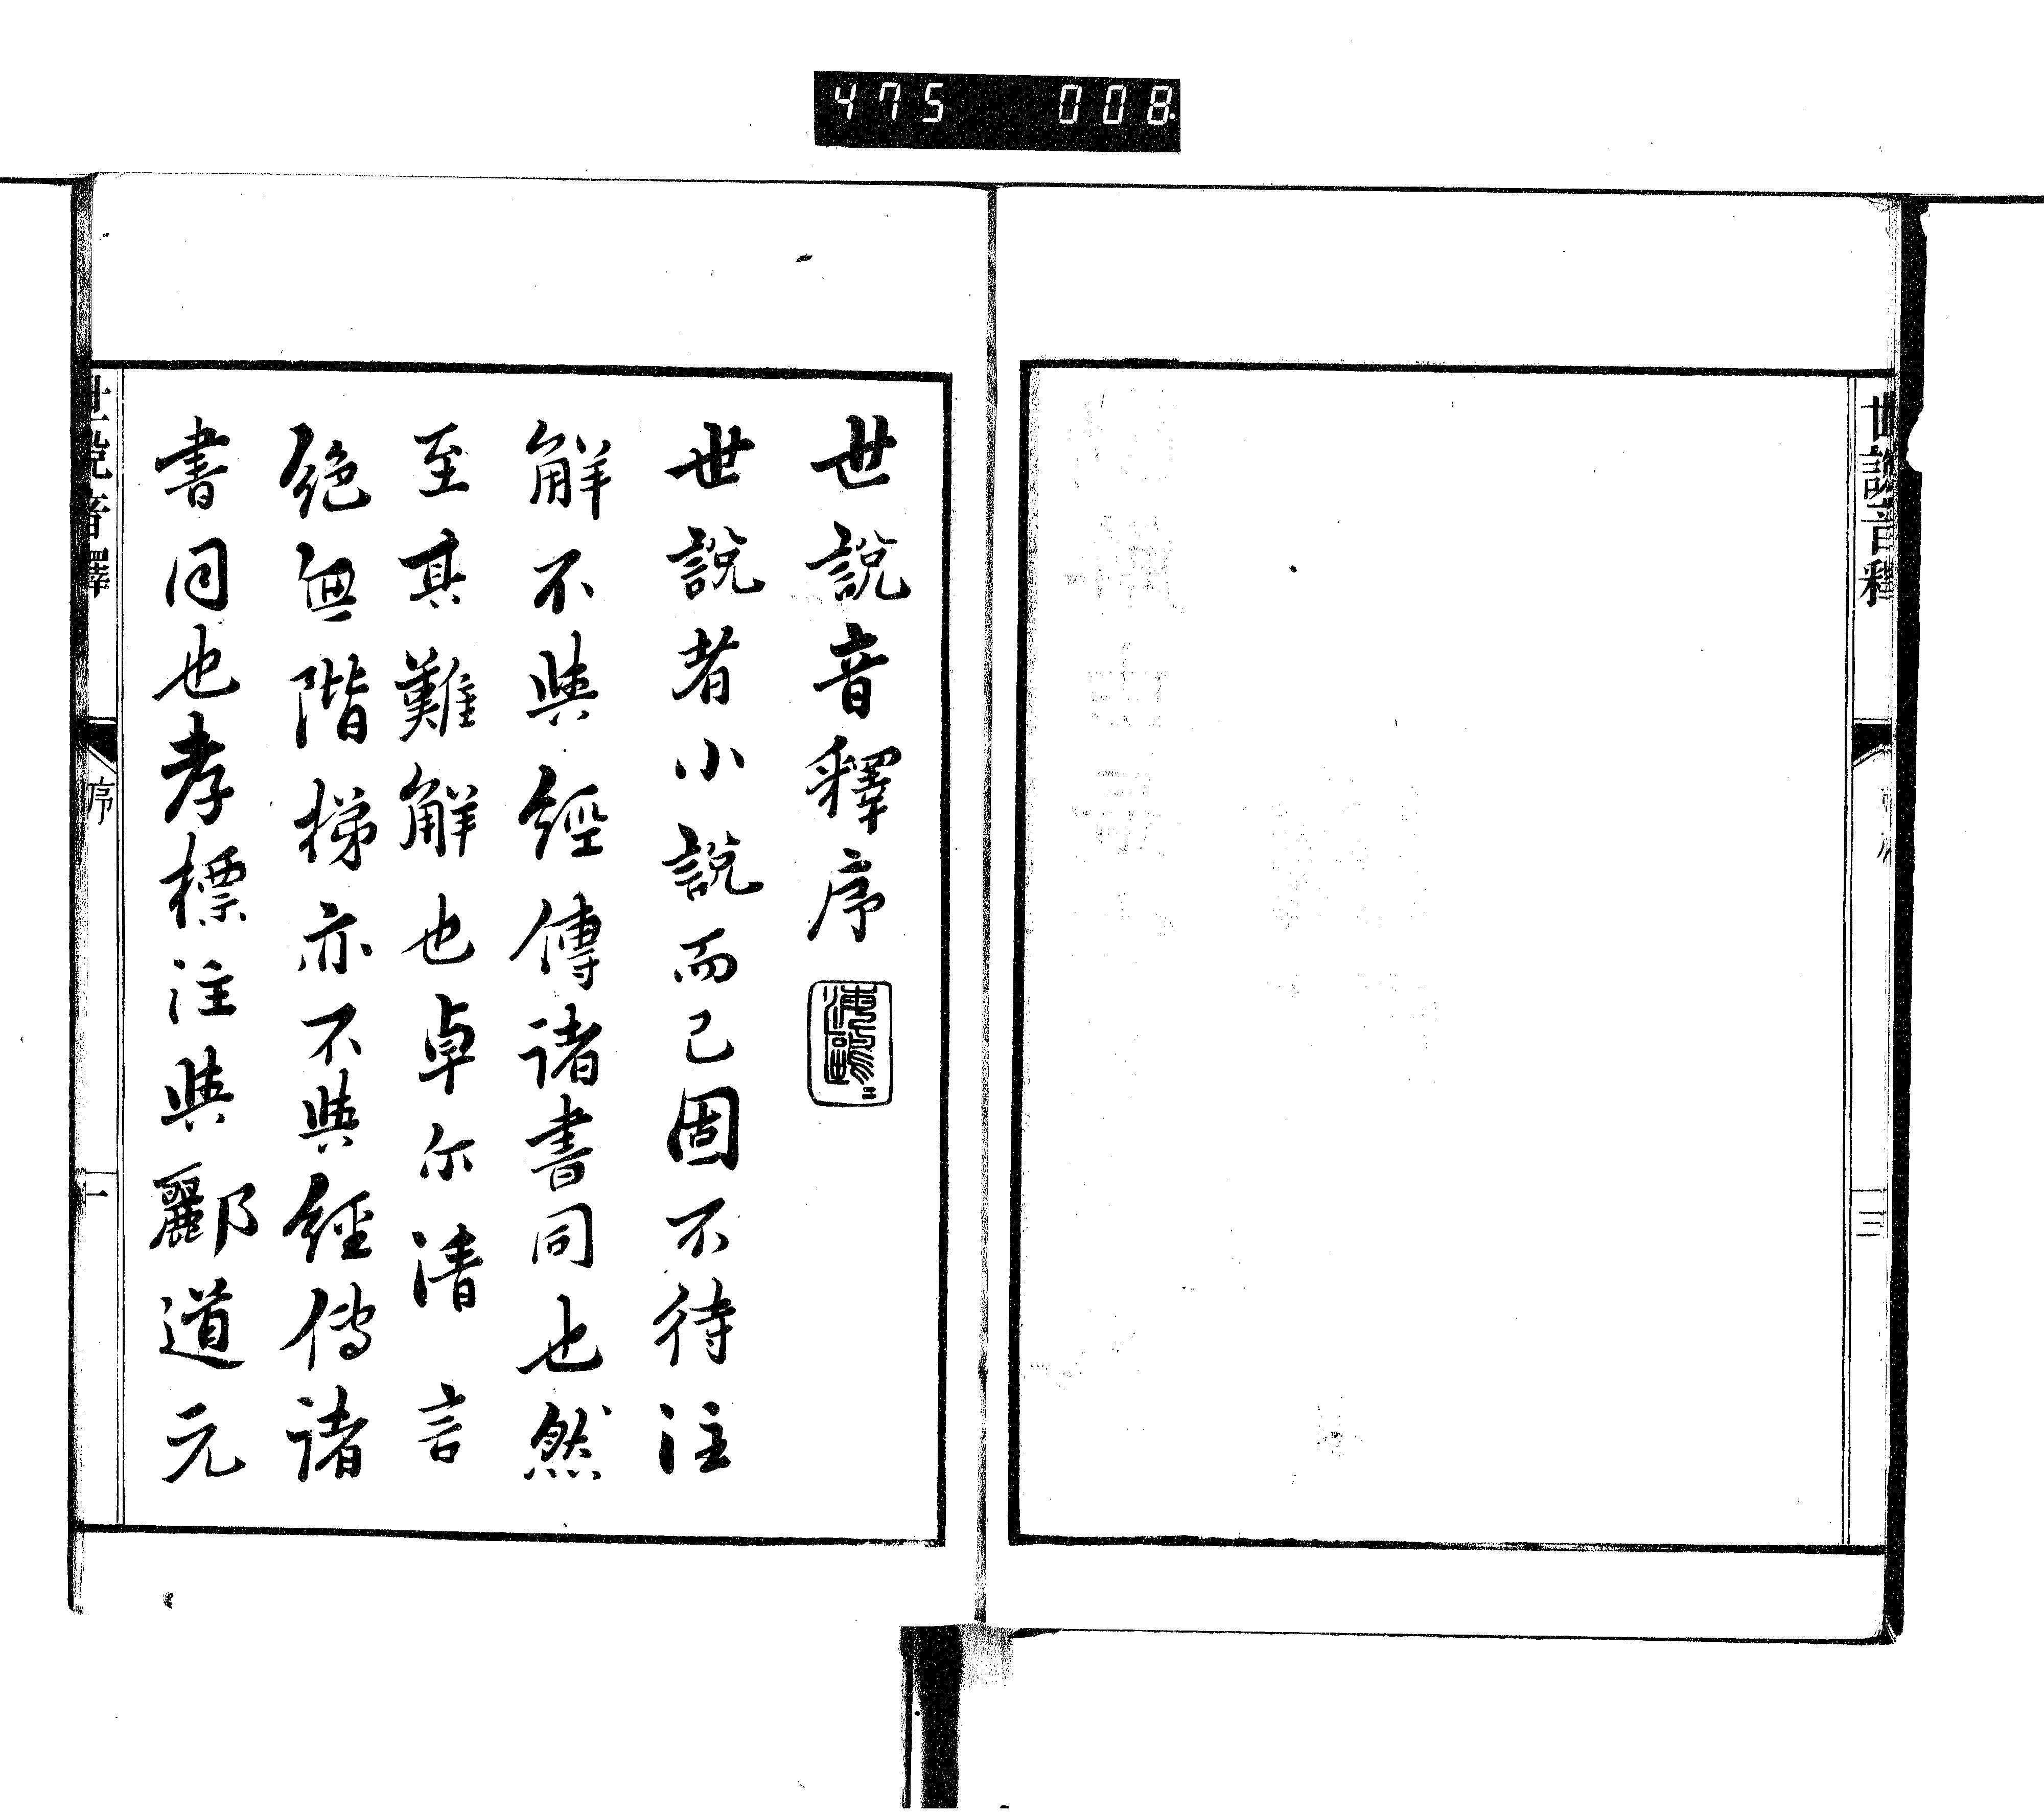 475 008
世說音釋
三
世說音釋序
世說者小說而已固不待注
解不與經傳諸書同也然
至其難解也卓尓清言
絶無階梯亦不與經傳諸
書同也孝標注與酈道元
世說音釋
序
一